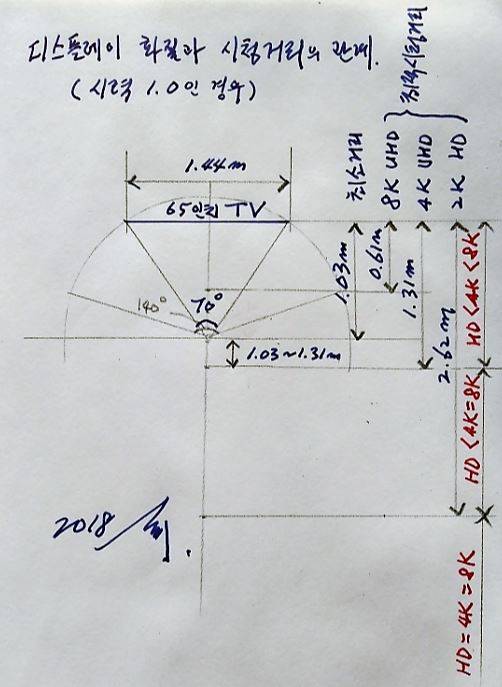 디스플레이 화질과 시청거리의 관계.
(시력 1.0인 경우)
최적시청거리
최소거리
8K UHD
4K UHD
2K HD
1.44m
65인치 TV
140°
70°
1.03m
0.61m
1.31m
2.62m
1.03~1.31m
HD < 4K < 8K
HD < 4K = 8K
HD = 4K = 8K
2018